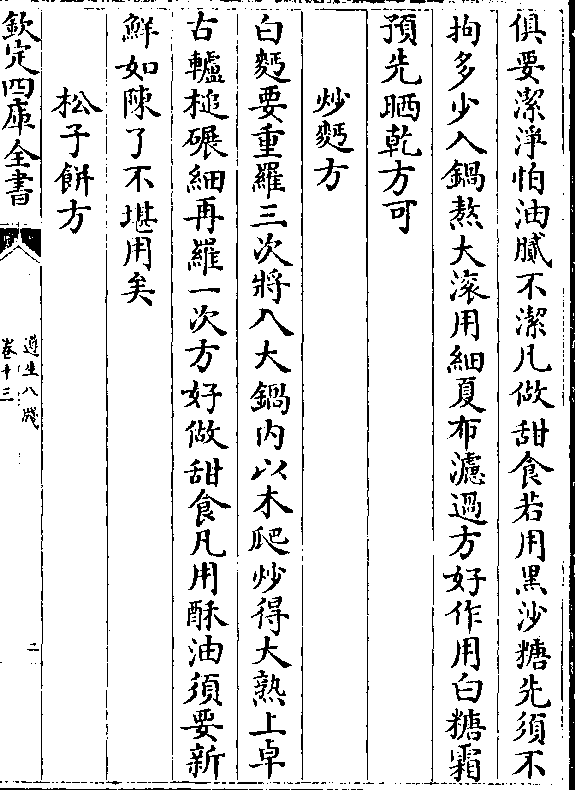 俱要潔淨怕油膩不潔凡做甜食若用黑沙糖先須不
拘多少入鍋熬大滾用細夏布濾過方好作用白糖霜
預先晒乾方可
炒麪方
白麪要重羅三次將入大鍋内以木爬炒得大熟上卓
古轤槌碾細再羅一次方好做甜食凡用酥油須要新
鮮如陳了不堪用矣
松子餅方
欽定四庫全書
遵生八牋
卷十三
二